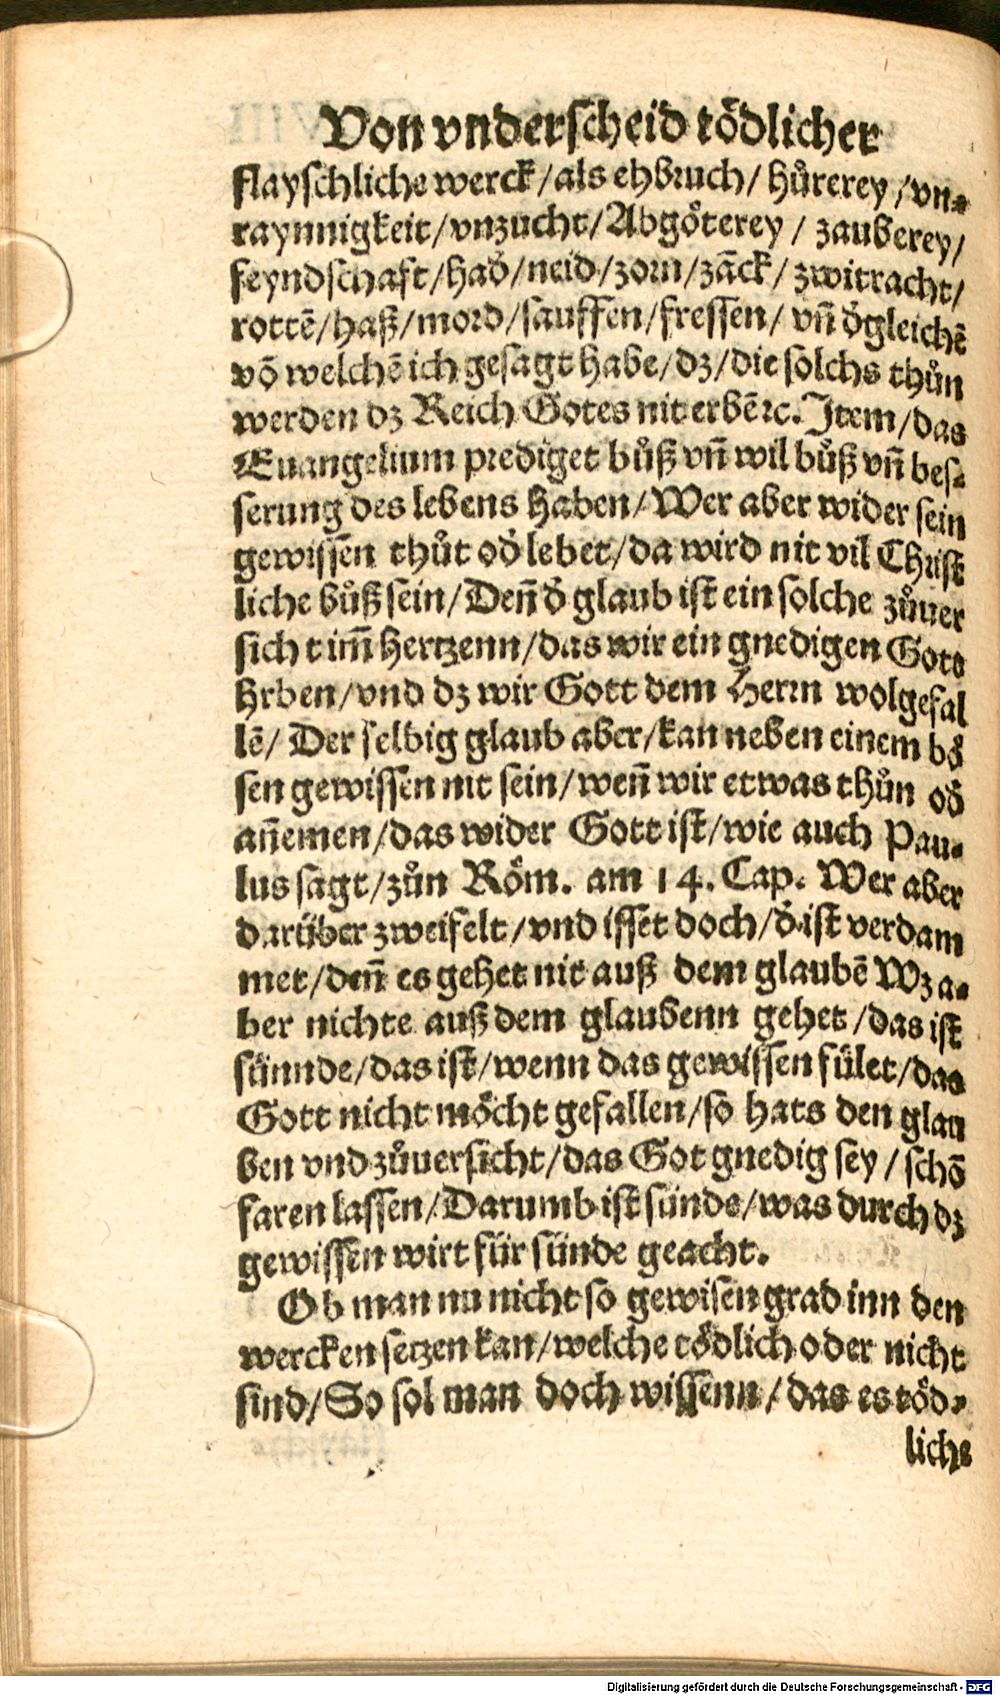 Von vnderscheid tödlicher
flayschliche werck/als ehbruch/ hůrerey/vn-
raynnigkeit/vnzucht/Abgöterey/ zauberey/
feyndschaft/had̓/neid/zorn/zãck/ zwitracht/
rottẽ/haß/mord/sauffen/fressen/ vñ d̓gleichẽ
võ welchẽ ich gesagt habe/dz/die solchs thůn
werden dz Reich Gotes nit erbẽ ꝛc. Item/das
Euangelium prediget bůß vñ wil bůß vñ bes-
serung des lebens haben/Wer aber wider sein
gewissen thůt od̓ lebet/da wird nit vil Christ
liche bůß sein/Deñ d̓ glaub ist ein solche zůuer
sicht im̃ hertzenn/das wir ein gnedigen Gots
hrben/vnd dz wir Gott dem Herrn wolgefal
lẽ/ Der selbig glaub aber/kan neben einem bö
sen gewissen nit sein/weñ wir etwas thůn od̓
añemen/das wider Gott ist/wie auch Pau-
lus sagt/zůn Röm. am 14. Cap. Wer aber
darüber zweifelt/vnd isset doch/d̓ ist verdam
met/deñ es gehet nit auß dem glaubẽ Wz a-
ber nichte auß dem glaubenn gehet/das ist
sünnde/das ist/wenn das gewissen fület/das
Gott nicht möcht gefallen/so hats den glau
ben vnd zůuersicht/das Got gnedig sey/schõ
faren lassen/Darumb ist sünde/was durch dz
gewissen wirt für sünde geacht.
Ob man nu nicht so gewisen grad inn den
wercken setzen kan/welche tödlich oder nicht
sind/So sol man doch wissenn/das es töd-
liche
Digitalisierung gefördert durch die Deutsche Forschungsgemeinschaft - DFG